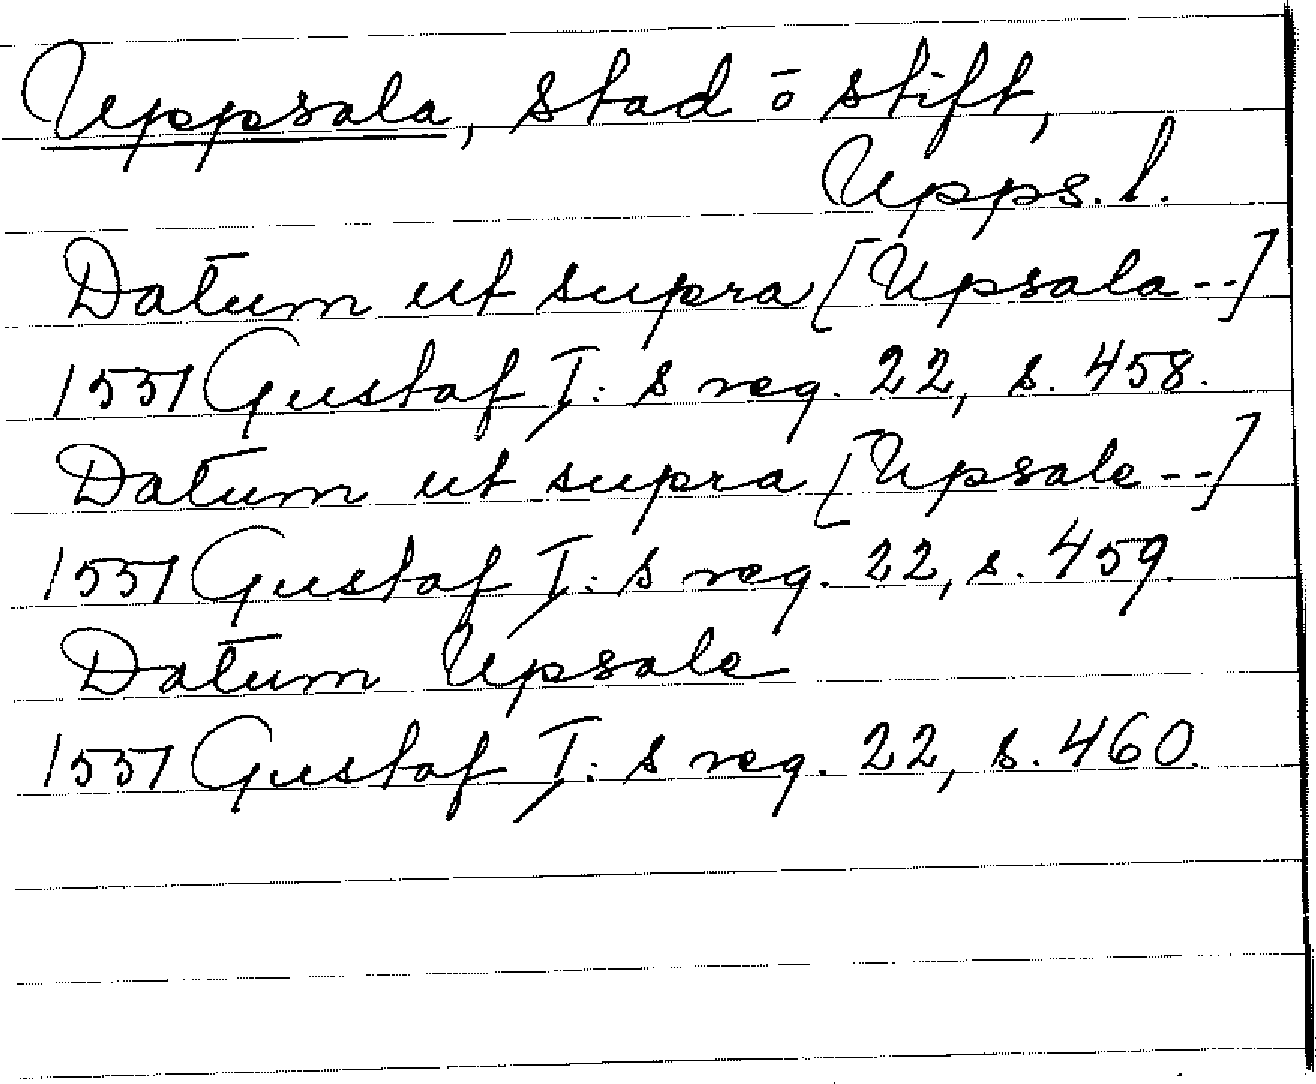 Uppsala, stad ō stift,
Upps. l.
Datum ut supra [Upsala--]
1551 Gustaf I: s reg. 22, s. 458.
Datum ut supra [Upsale--]
1551 Gustaf I: s reg. 22, s. 459.
Datum Upsale
1551 Gustaf I: s reg. 22, s. 460.